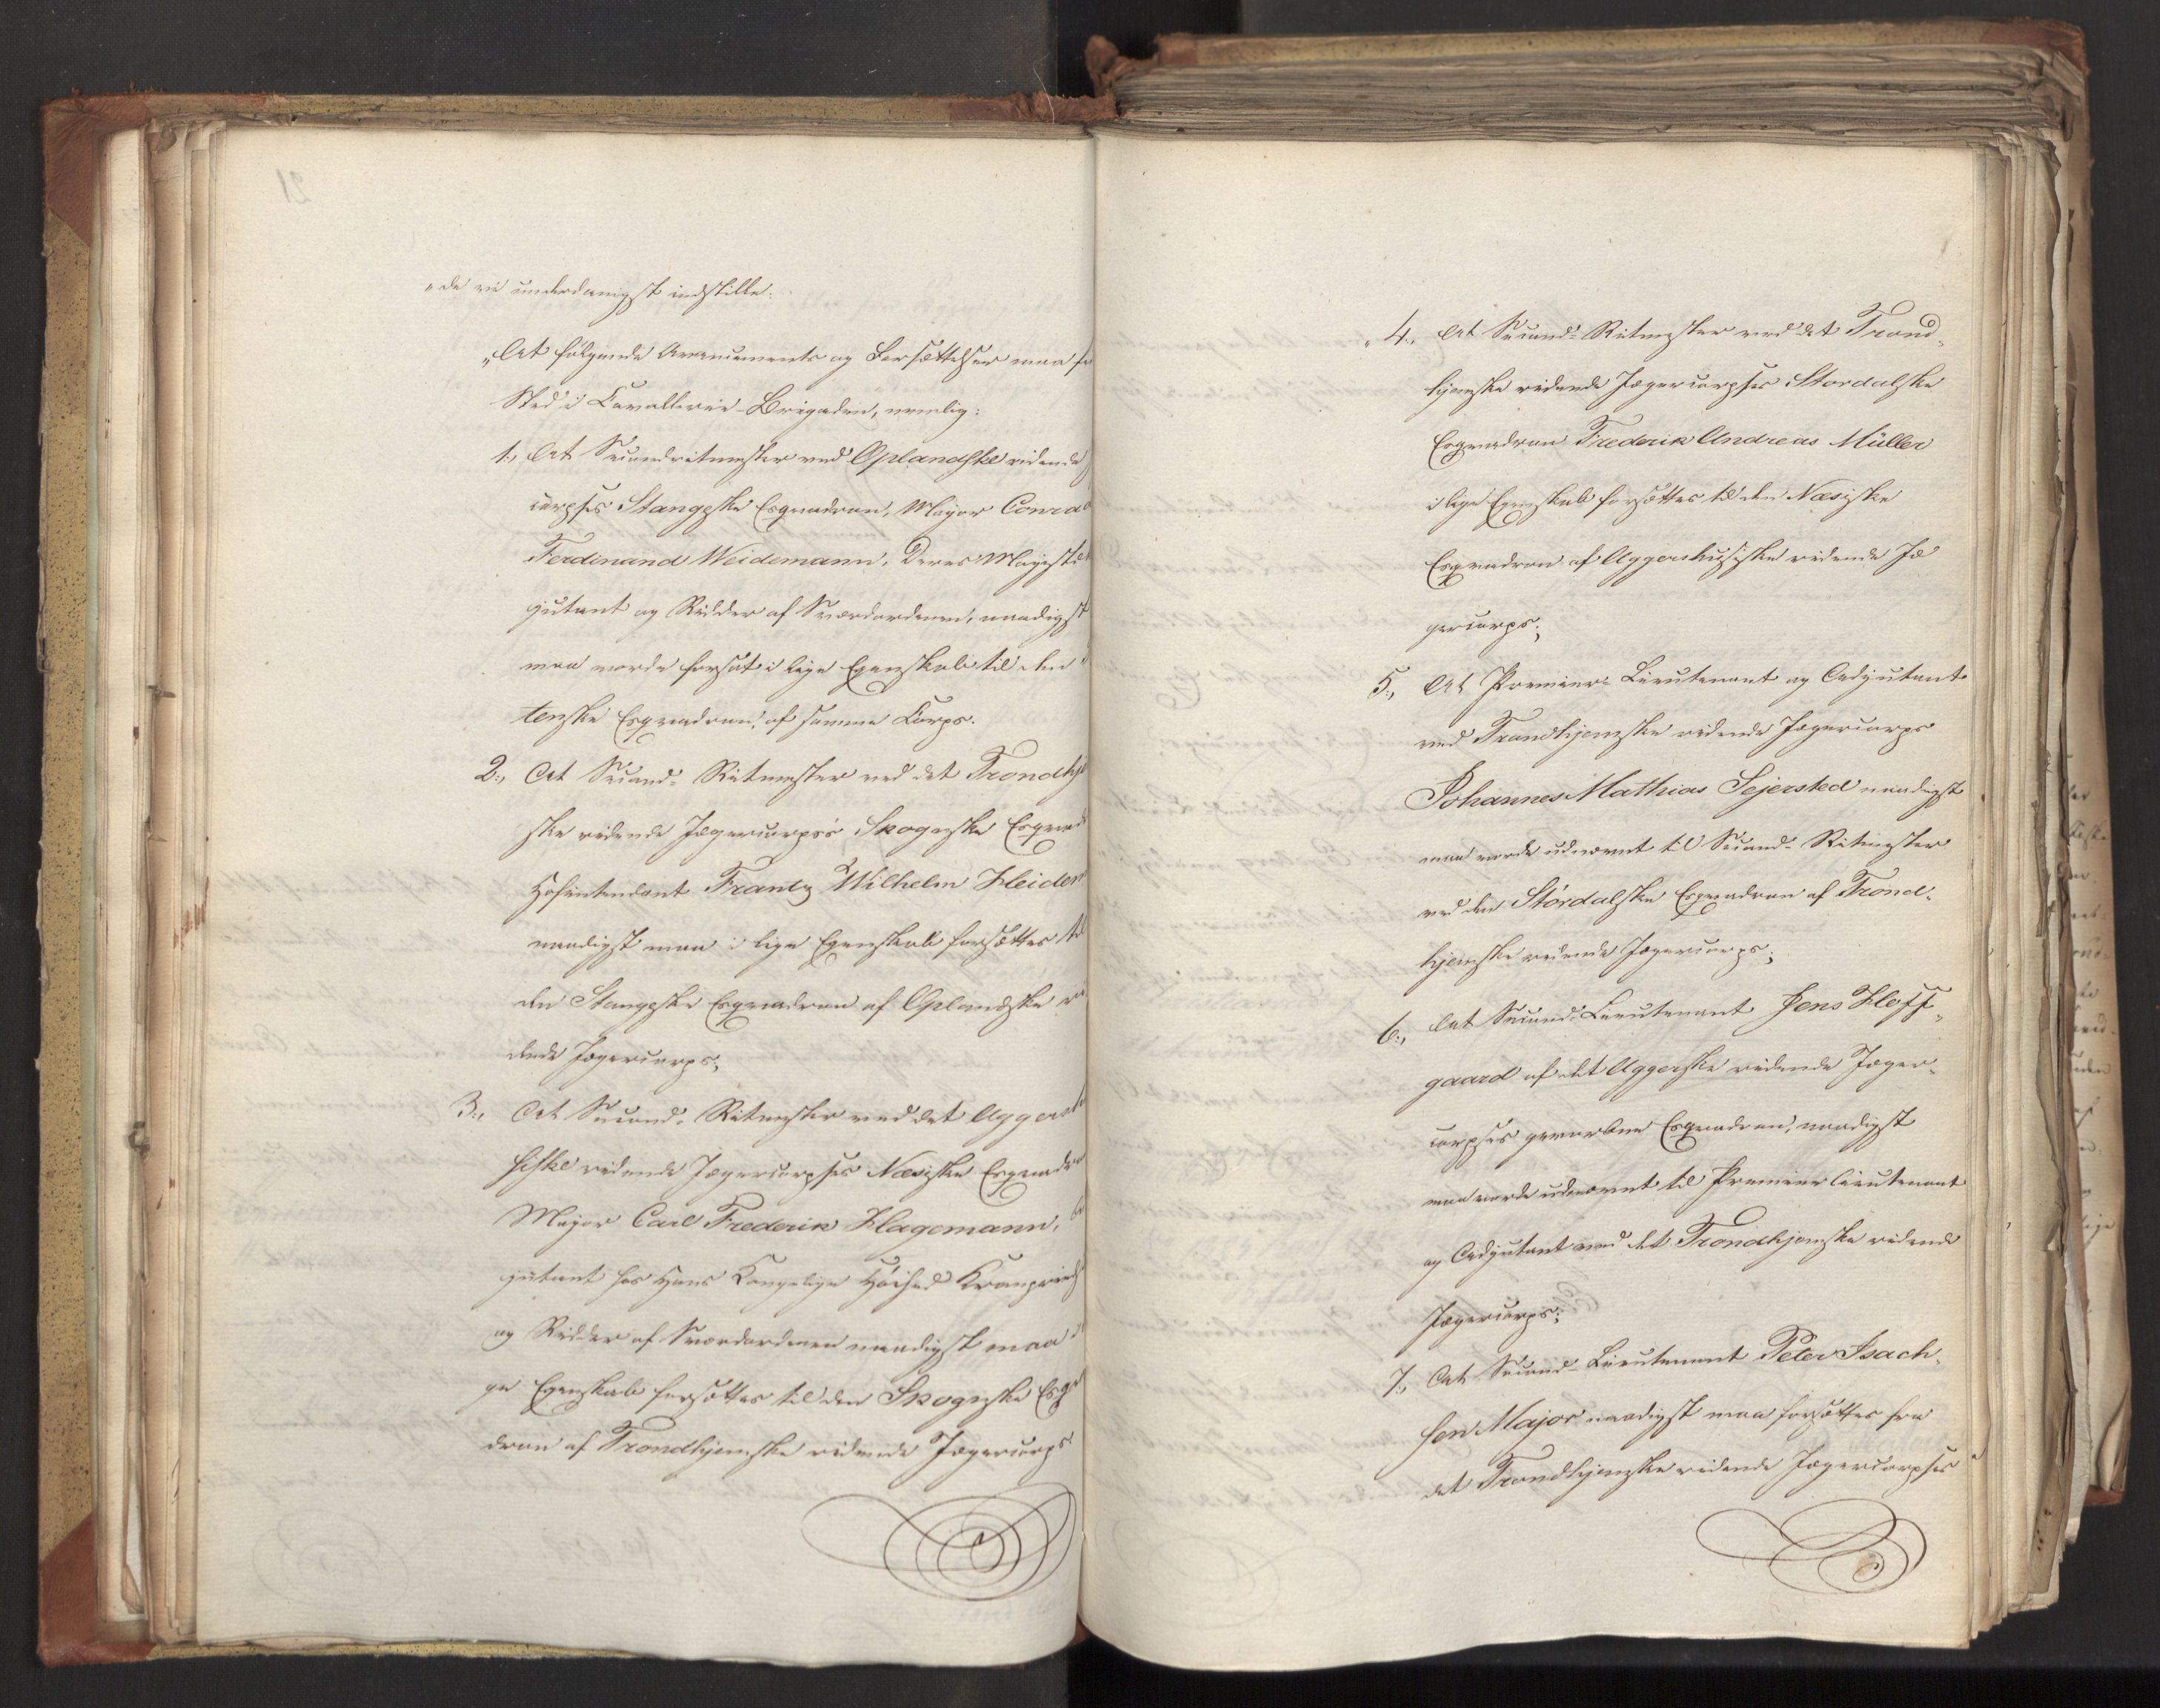 "de vi underdanigst indstille:
"At følgende Avancements og Forsættelser maa
Sted i Cavallerie-Brigaden, nemlig:
1., At Secondritmester ved Oplandske ridende
corpses Stangeske Esqvadron, Major Conrad
Ferdinand Weidemann, Deres Majestæt
jutant og Ridder af Sværdordenen, naadigst
maa vorde forsat i lige Egenskab til den
tenske Esqvadron, af samme Corps.
2., At Second-Ritmester ved det Trondhje
ske ridende Jægercorps's Skognske Esqvad
Hofintendant Frantz Wilhelm Heiden
naadigst maa i lige Egenskab forsættes til
den Stangeske Esqvadron af Oplandske ri
dende Jægercorps;
3., At Second-Ritmester ved det Aggersh
siske ridende Jægercorpses Næsiske Esqvadron
Major Carl Frederik Hagemann,
jutant hos Hans Kongelige Høihed Kronprinds
og Ridder af Sværdordenen naadigst maa i
ge Egenskab forsættes til den Skognske Esqva
dron af Trondhjemske ridende Jægercorps
"4., At Second-Ritmester ved det Trond-
hjemske ridende Jægercorpses Stordalske
Esqvadron Frederik Andreas Müller
i lige Egenskab forsættes til den Næsiske
Esqvadron af Aggershusiske ridende Jæ
gercorps;
5., At Premier-Lieutenant og Adjutant
ved Trondhjemske ridende Jægercorps
Johannes Mathias Sejersted naadigst
maa vorde udnævnt til Second-Ritmester
ved den Stördalske Esqvadron af Trond-
hjemske ridende Jægercorps;
6., At Second-Lieutenant Jens Kloff-
gaard af det Aggerske ridende Jæger-
corpses gevorbne Esqvadron, naadigst
maa vorde udnævnt til Premierlieutenant
og Adjutant ved det Trondhjemske ridende
Jægercorps;
7., At Second-Lieutenant Peter Isach-
sen Major naadigst maa forsættes fra
det Trondhjemske ridende Jægercorpses